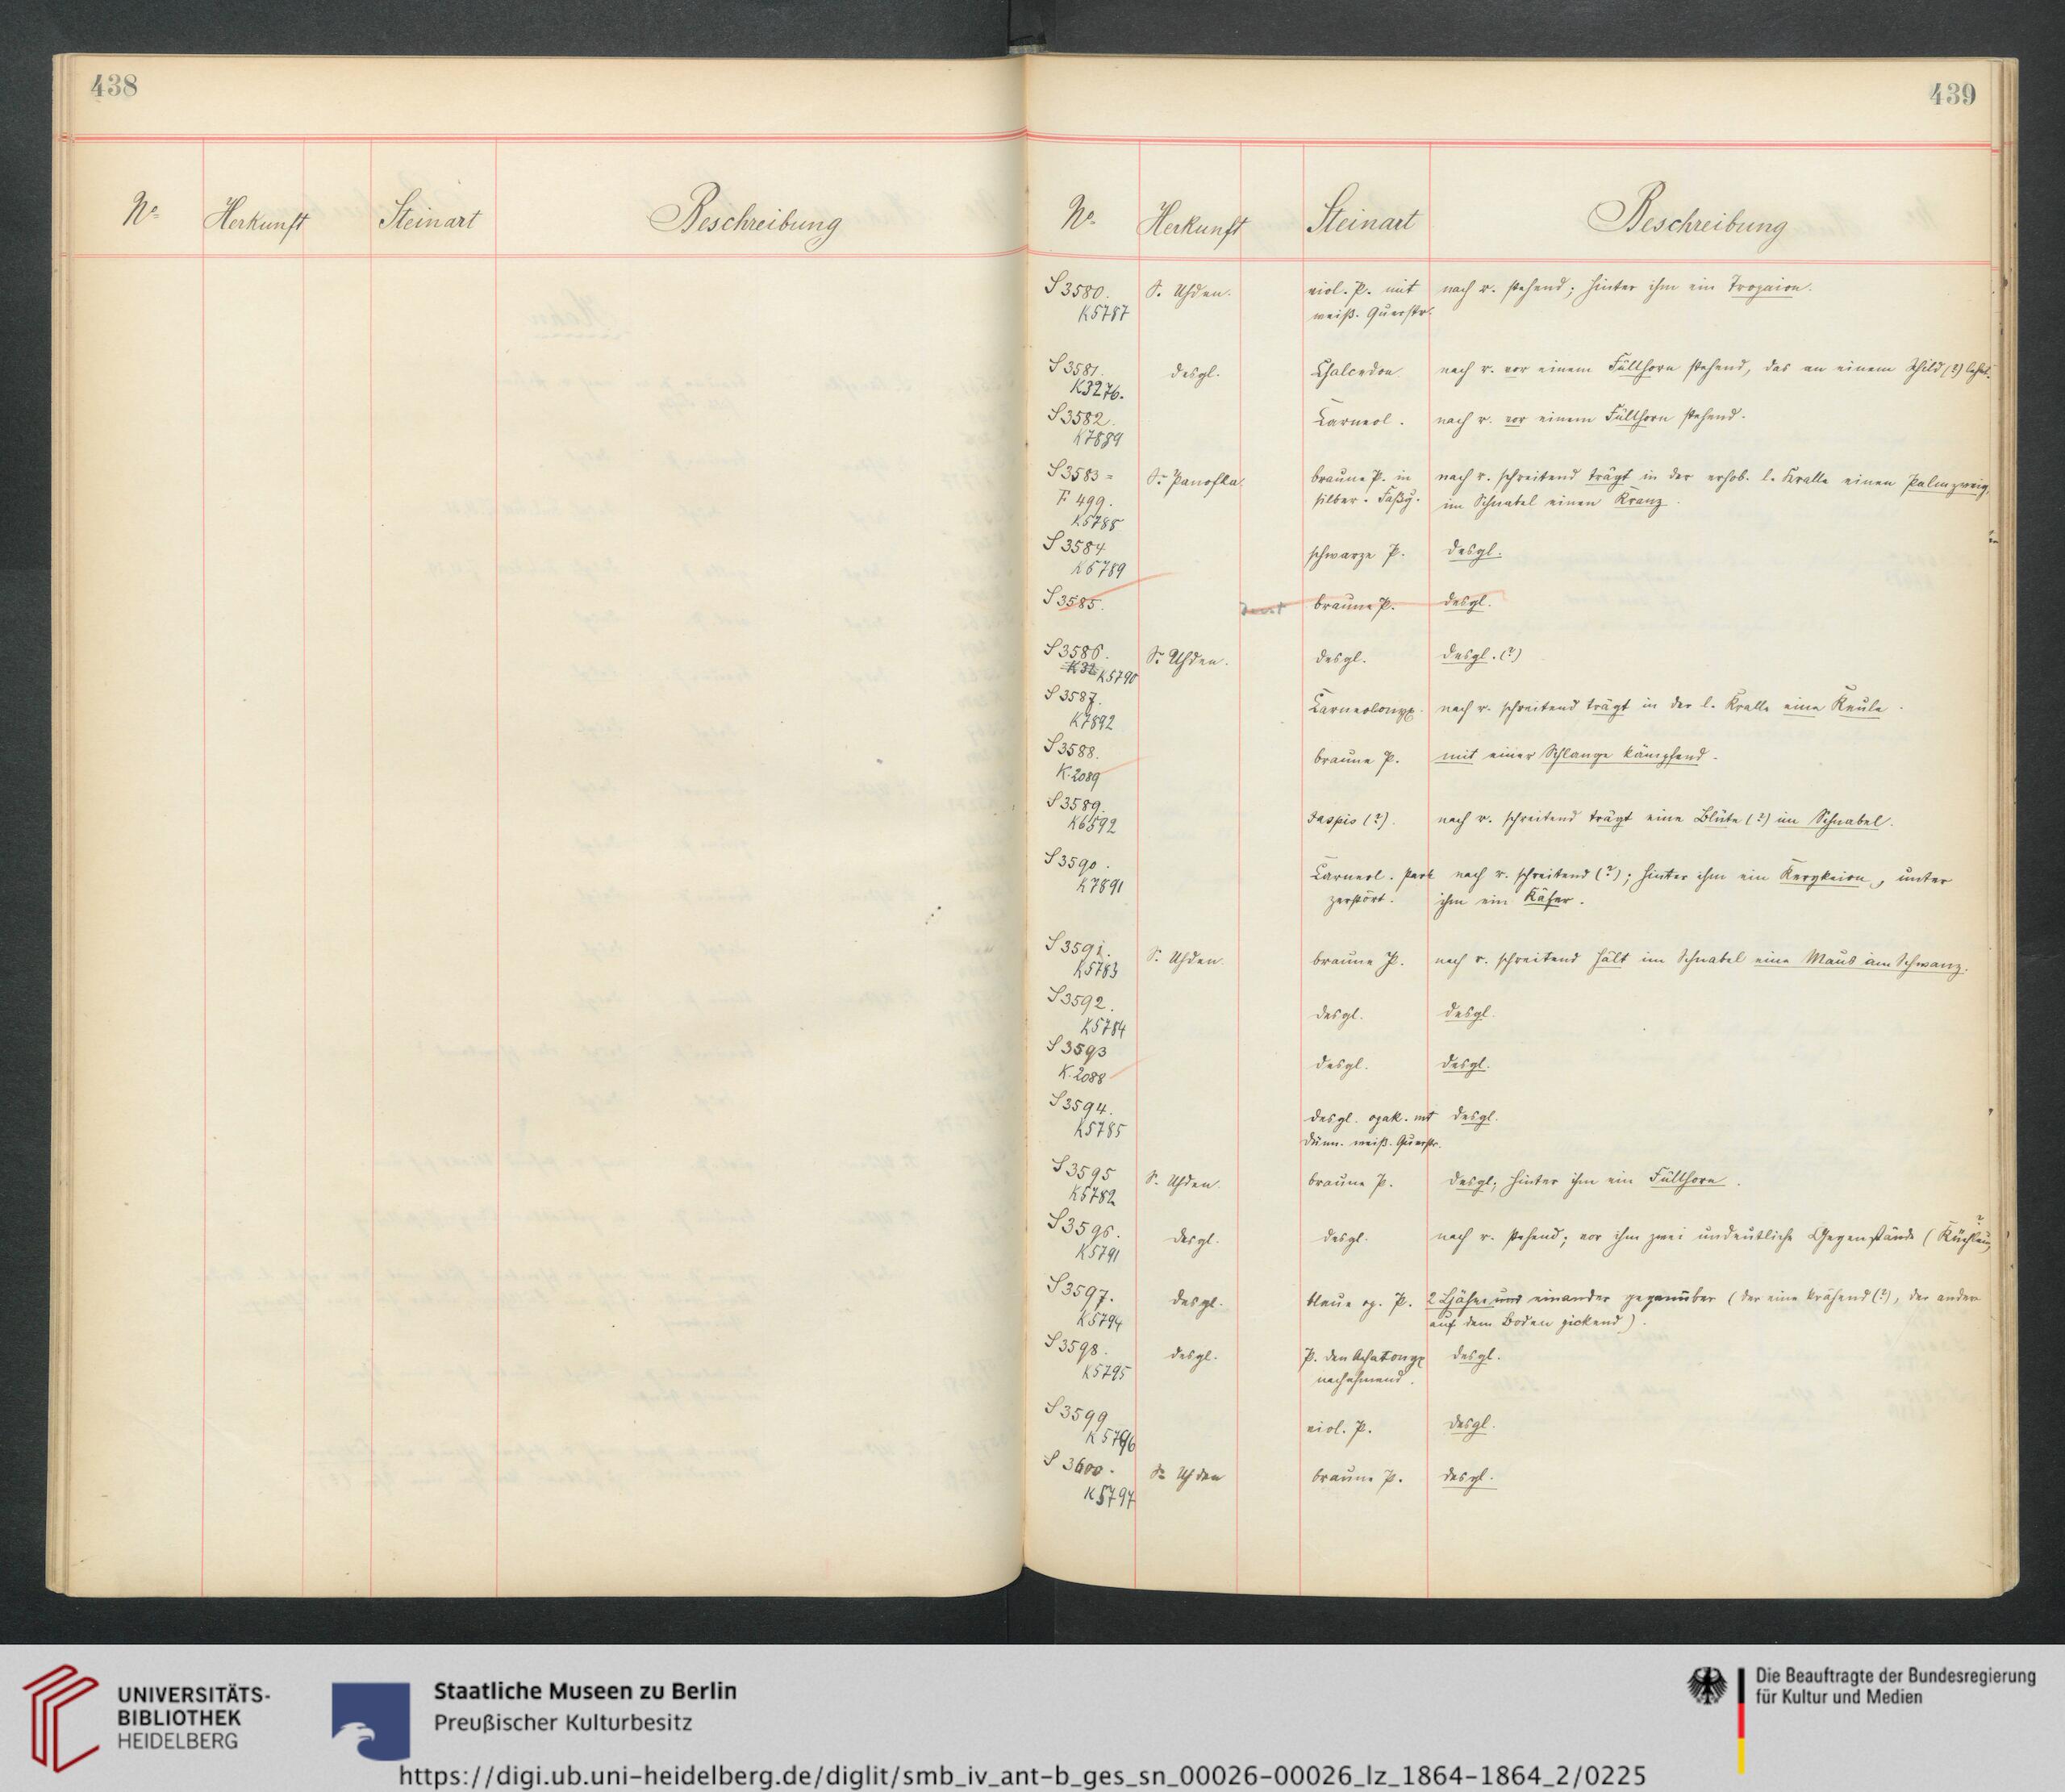 438
No. Herkunft Steinart Beschreibung
439
No. Herkunft Steinart Beschreibung
S 3580. S. Uhden. viol. P. mit nach r. stehend; hinter ihm ein Tropaion.
K5787 weiß. Querstr.
S 3581. desgl. Chalcedon nach r. vor einem Füllhorn stehend, das an einem Schild (?) lehnt.
K3276.
S 3582. Carneol. nach r. vor einem Füllhorn stehend.
K7889
S 3583 = S. Panofka braune P. in nach r. schreitend trägt in der erhob. l. Kralle einen Palmzweig,
F 499. silber. Faßg. im Schnabel einen Kranz.
K5788
S 3584 schwarze P. desgl.
K5789
S 3585. braune P. desgl.
S 3586. S. Uhden. desgl. desgl. (?)
K32 K5790
S 3587. Carneolonyx. nach r. schreitend trägt in der l. Kralle eine Keule.
K7892
S 3588. braune P. mit einer Schlange kämpfend.
K.2089
S 3589. Jaspis (?). nach r. schreitend trägt eine Blüte (?) im Schnabel.
K6592
S 3590. Carneol. stark nach r. schreitend (?); hinter ihm ein Kerykeion, unter
K7891 zerstört. ihm ein Käfer.
S 3591. S. Uhden. braune P. nach r. schreitend hält im Schnabel eine Maus am Schwanz.
K5783
S 3592. desgl. desgl.
K5784
S 3593 desgl. desgl.
K.2088
S 3594. desgl. opak. mit desgl.
K5785 dünn. weiß. Querstr.
S 3595 S. Uhden. braune P. desgl; hinter ihm ein Füllhorn.
K5782
S 3596. desgl. desgl. nach r. stehend; vor ihm zwei undeutliche Gegenstände (Küchlein?)
K5791
S 3597. desgl. blaue op. P. 2 Hähne einander gegenüber (der eine krähend (?), der andere
K5794 auf dem Boden pickend).
S 3598. desgl. P. den Achatonyx desgl.
K5795 nachahmend.
S 3599 viol. P. desgl.
K5796
S 3600. S. Uhden braune P. desgl.
K5797
UNIVERSITÄTS-
BIBLIOTHEK
HEIDELBERG
Staatliche Museen zu Berlin
Preußischer Kulturbesitz
Die Beauftragte der Bundesregierung
für Kultur und Medien
https://digi.ub.uni-heidelberg.de/diglit/smb_iv_ant-b_ges_sn_00026-00026_lz_1864-1864_2/0225